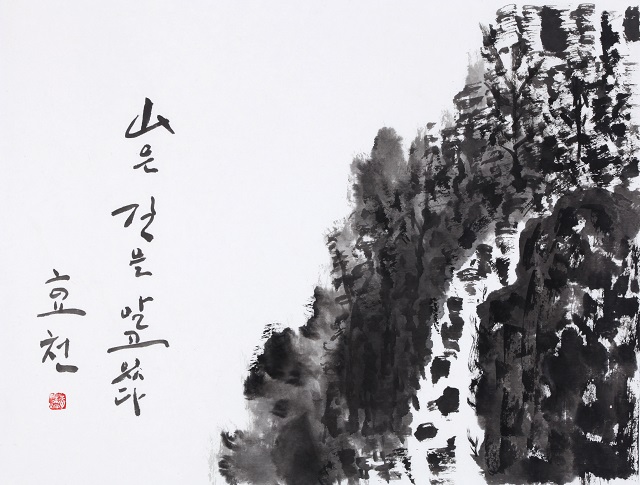 山은 길을 알고있다
효천